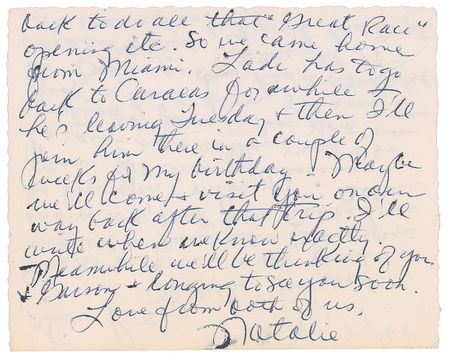 back to do all that "Great Race"
opening etc. So we came home
from Miami. Ladi has to go
back to Caracas for awhile &
he's leaving Tuesday & then I'll
join him there in a couple of
weeks for my birthday. Maybe
we'll come & visit you on our
way back after that trip. I'll
write when we know exactly.
Meanwhile we'll be thinking of you
& longing to see you soon.
Love from both of us,
Natalie